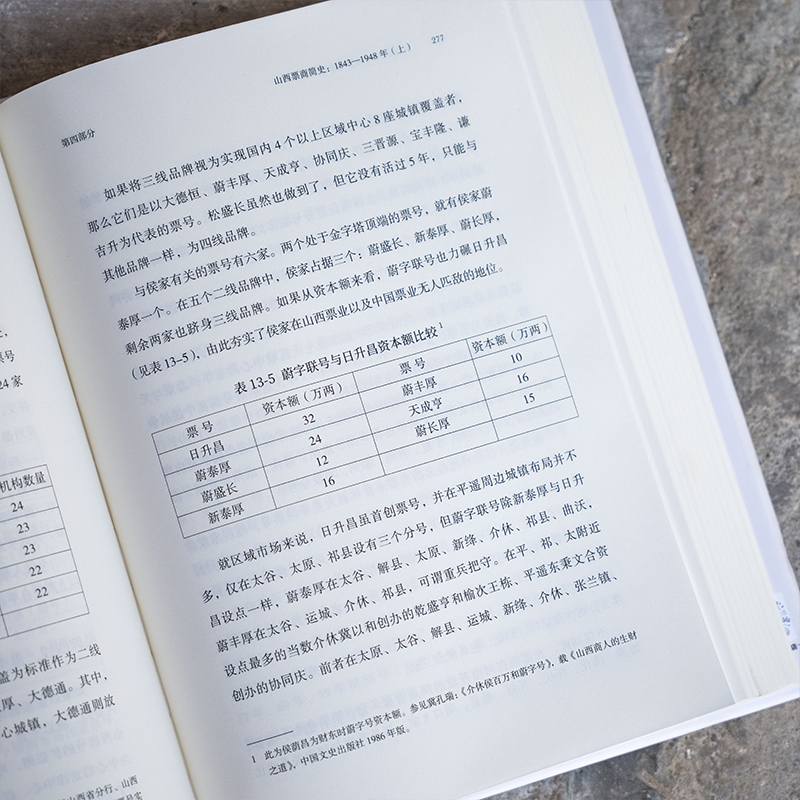 山西票商简史：1843—1948年（上） 277
第四部分
如果将三线品牌视为实现国内4个以上区域中心8座城镇覆盖者，
那么它们是以大德恒、蔚丰厚、天成亨、协同庆、三晋源、宝丰隆、谦
吉升为代表的票号。松盛长虽然也做到了，但它没有活过5年，只能与
其他品牌一样，为四线品牌。
与侯家有关的票号有六家。两个处于金字塔顶端的票号，就有侯家蔚
泰厚一个。在五个二线品牌中，侯家占据三个：蔚盛长、新泰厚、蔚长厚，
剩余两家也跻身三线品牌。如果从资本额来看，蔚字联号也力碾日升昌
（见表13-5），由此夯实了侯家在山西票业以及中国票业无人匹敌的地位。
表13-5 蔚字联号与日升昌资本额比较1
票号 资本额（万两） 票号 资本额（万两）
日升昌 32 蔚丰厚 10
蔚泰厚 24 天成亨 16
蔚盛长 12 蔚长厚 15
新泰厚 16
就区域市场来说，日升昌虽首创票号，并在平遥周边城镇布局并不
多，仅在太谷、太原、祁县设有三个分号，但蔚字联号除新泰厚与日升
昌设点一样，蔚泰厚在太谷、解县、太原、新绛、介休、祁县、曲沃，
蔚丰厚在太谷、运城、介休、祁县，可谓重兵把守。在平、祁、太附近
设点最多的当数介休冀以和创办的乾盛亨和榆次王栋、平遥东秉文合资
创办的协同庆。前者在太原、太谷、解县、运城、新绛、介休、张兰镇、
1 此为侯荫昌为财东时蔚字号资本额。参见冀孔瑞：《介休侯百万和蔚字号》，载《山西商人的生财
之道》，中国文史出版社1986年版。
票号
24家
机构数量
24
23
23
22
22
盖为标准作为二线
厚、大德通。其中，
心城镇，大德通则放
山西省分行、山西